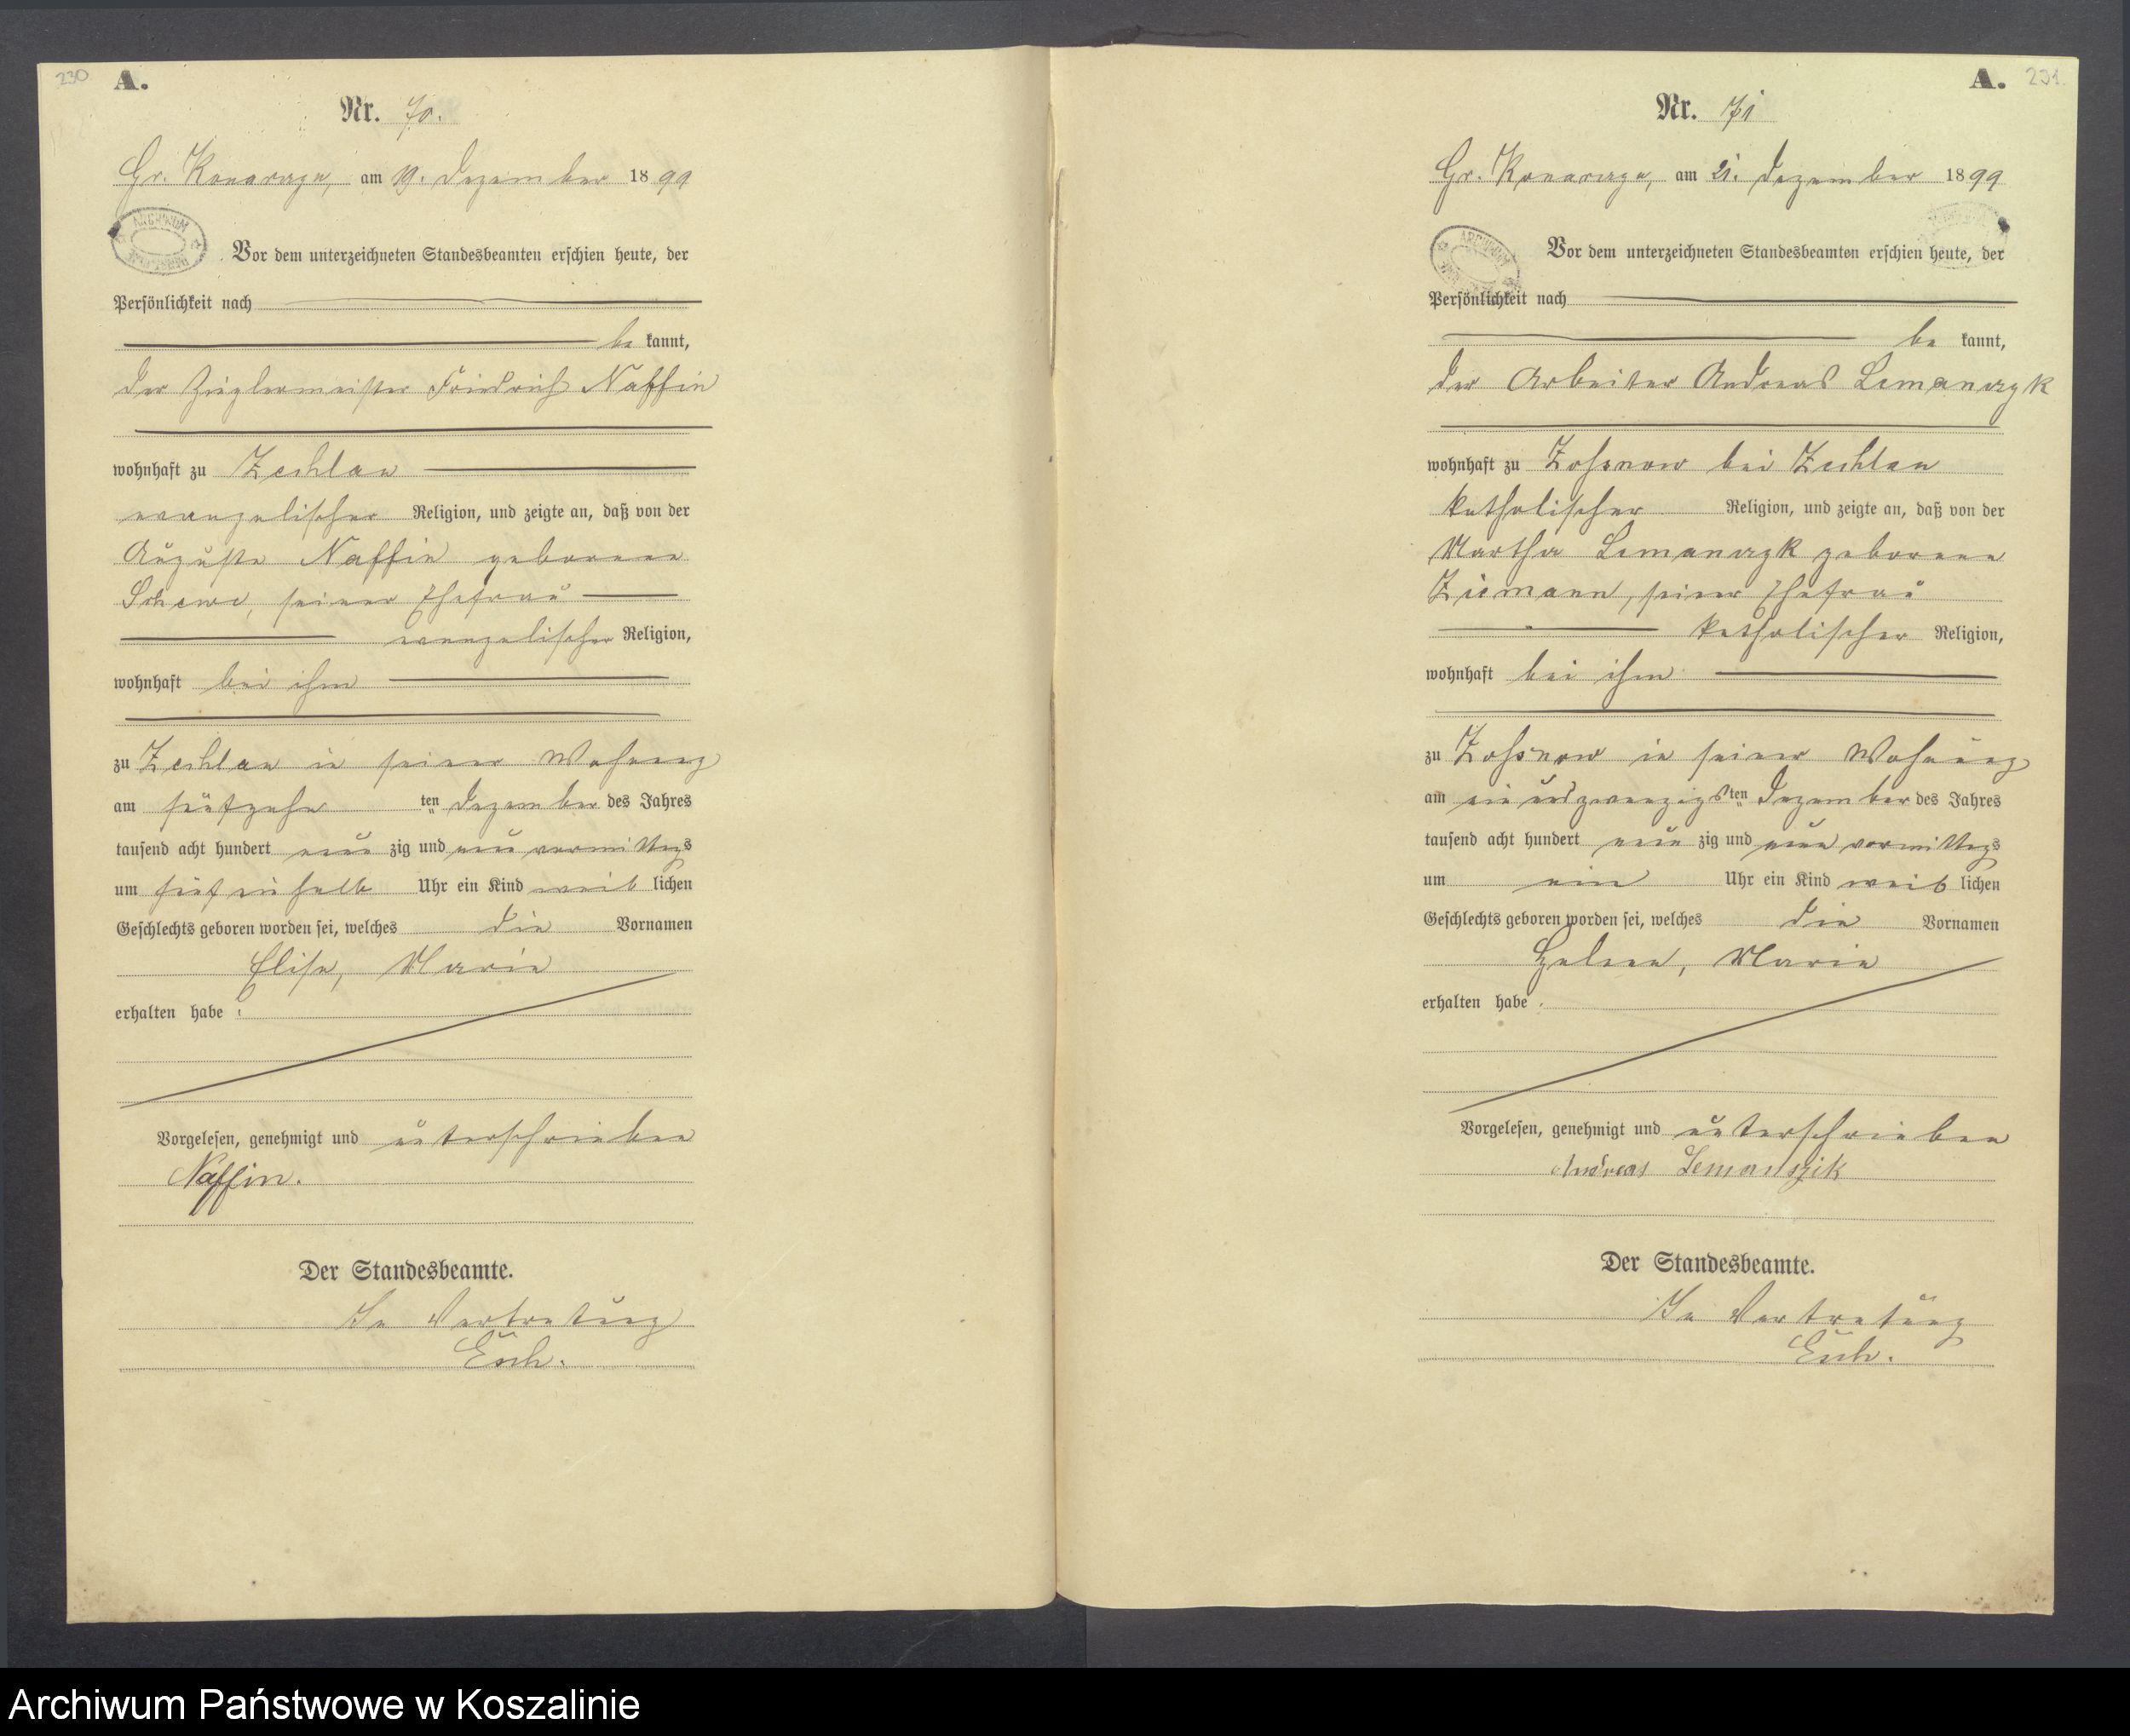 230
A.
Nr. 70.
Gr. Konarczyn, am 19. Dezember 1899
ARCHIWUM
Vor dem unterzeichneten Standesbeamten erschien heute, der
Persönlichkeit nach
be kannt,
der Zieglermeister Friedrich Naffin
wohnhaft zu Zechlau
evangelischer Religion, und zeigte an, daß von der
Auguste Naffin geborenen
Schewe, seiner Ehefrau
evangelischer Religion,
wohnhaft bei ihm
zu Zechlau in seiner Wohnung
am fünfzehn ten Dezember des Jahres
tausend acht hundert neun zig und neun vormittags
um fünf ein halb Uhr ein Kind weib lichen
Geschlechts geboren worden sei, welches die Vornamen
Elise, Marie
erhalten habe.
Vorgelesen, genehmigt und unterschrieben
Naffin.
Der Standesbeamte.
In Vertretung
231
A.
Nr. 71
Gr. Konarczyn, am 21. Dezember 1899
ARCHIWUM
Vor dem unterzeichneten Standesbeamten erschien heute, der
Persönlichkeit nach
be kannt,
der Arbeiter Andreas Lemanczyk
wohnhaft zu Zossnow bei Zechlau
katholischer Religion, und zeigte an, daß von der
Martha Lemanczyk geborenen
Ziemann, seiner Ehefrau
katholischer Religion,
wohnhaft bei ihm
zu Zossnow in seiner Wohnung
am ein und zwanzigsten Dezember des Jahres
tausend acht hundert neun zig und neun vormittags
um ein Uhr ein Kind weib lichen
Geschlechts geboren worden sei, welches die Vornamen
Helene, Marie
erhalten habe.
Vorgelesen, genehmigt und unterschrieben
Andreas Lemanszik
Der Standesbeamte.
In Vertretung
Archiwum Państwowe w Koszalinie